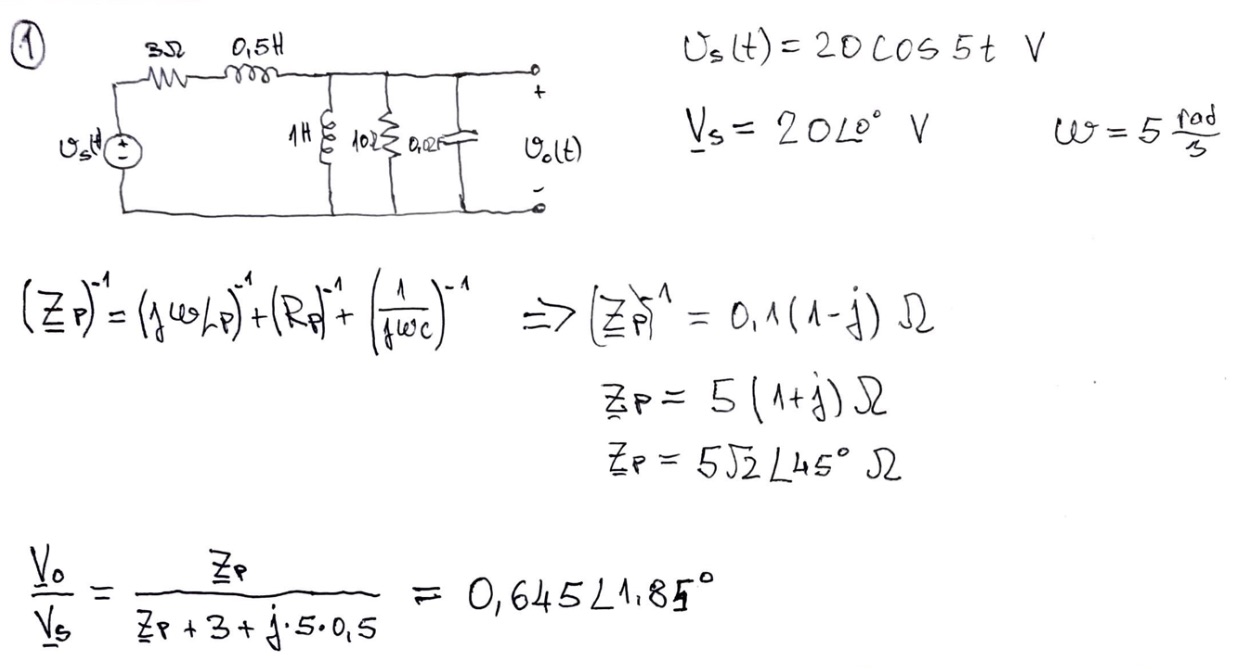 ① 3Ω 0,5H
1H 10Ω 0,02F
υs(t) + − υo(t) + −
υs(t) = 20 cos 5t V
Vs = 20∠0° V ω = 5 rad/s
(Zp)⁻¹ = (jωLp)⁻¹ + (Rp)⁻¹ + (1/jωc)⁻¹ => (Zp)⁻¹ = 0,1(1-j) Ω
Zp = 5(1+j) Ω
Zp = 5√2∠45° Ω
Vo/Vs = Zp/(Zp + 3 + j·5·0,5) = 0,645∠1.85°